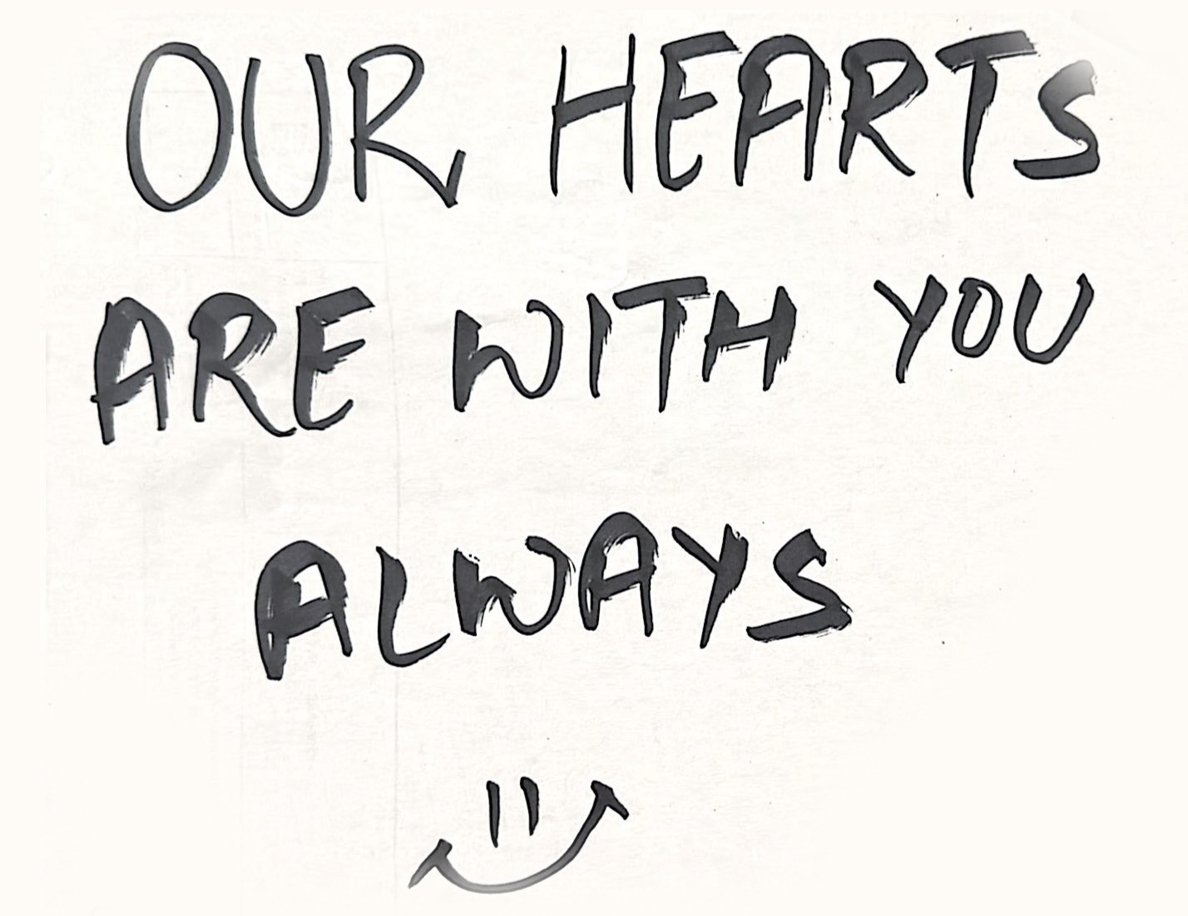 OUR HEARTS
ARE WITH YOU
ALWAYS